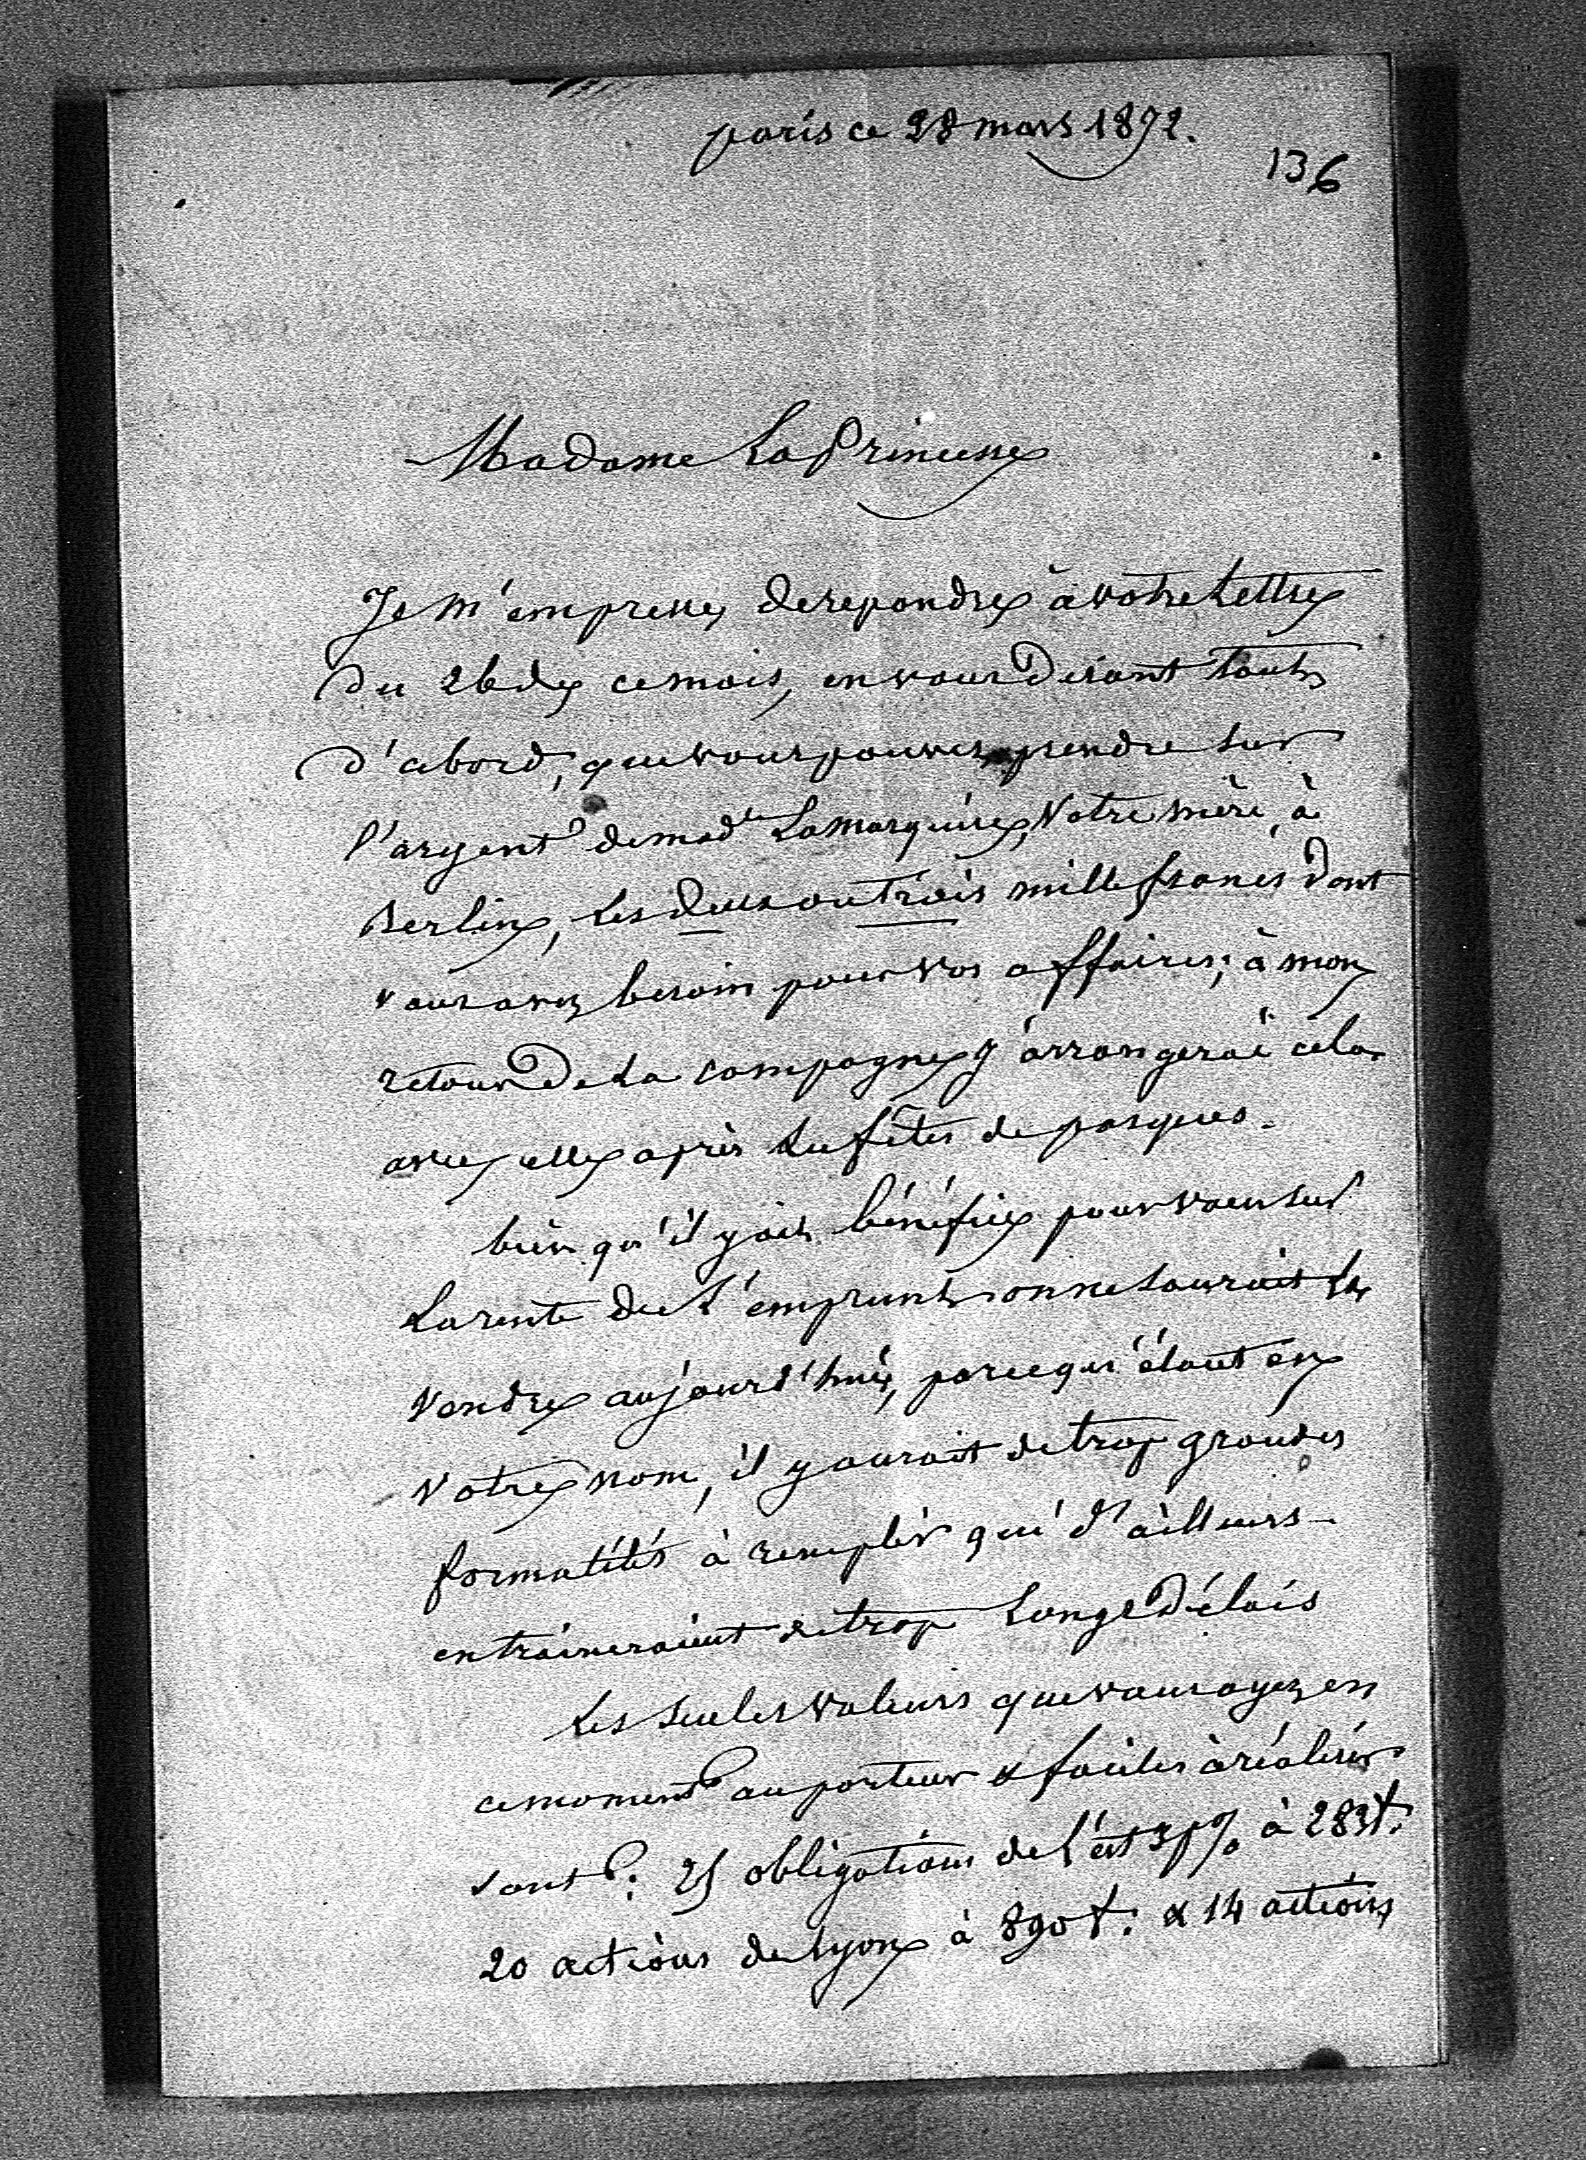 paris ce 28 mars 1872.
136
Madame La Princesse
Je m'empresse de repondre à votre Lettre
du 26 de ce mois, en vous disant tout
d'abord, que vous pouvez prendre sur
l'argent de mad.e La marquise, Votre mère, à
Berlin, les deux ou trois mille francs dont
vous avez besoin pour vos affaires; à mon
retour de La campagne j'arrangerai cela
avec elle après les fêtes de pasques.
bien qu'il y ait bénéfice pour vous sur
La rente de L'emprunt, on ne sauroit la
Vendre aujourd'hui, parcequ'étant en
Votre nom, il y auroit de trop grandes
formalités à remplir qui d'ailleurs
entraineraient de trop Longs délais
Les seules valeurs que vous ayez en
ce moment au porteur & faciles à réaliser
sont: 25 obligations de l'est 3 p% à 283 f.
20 actions de Lyon à 890 f. & 14 actions